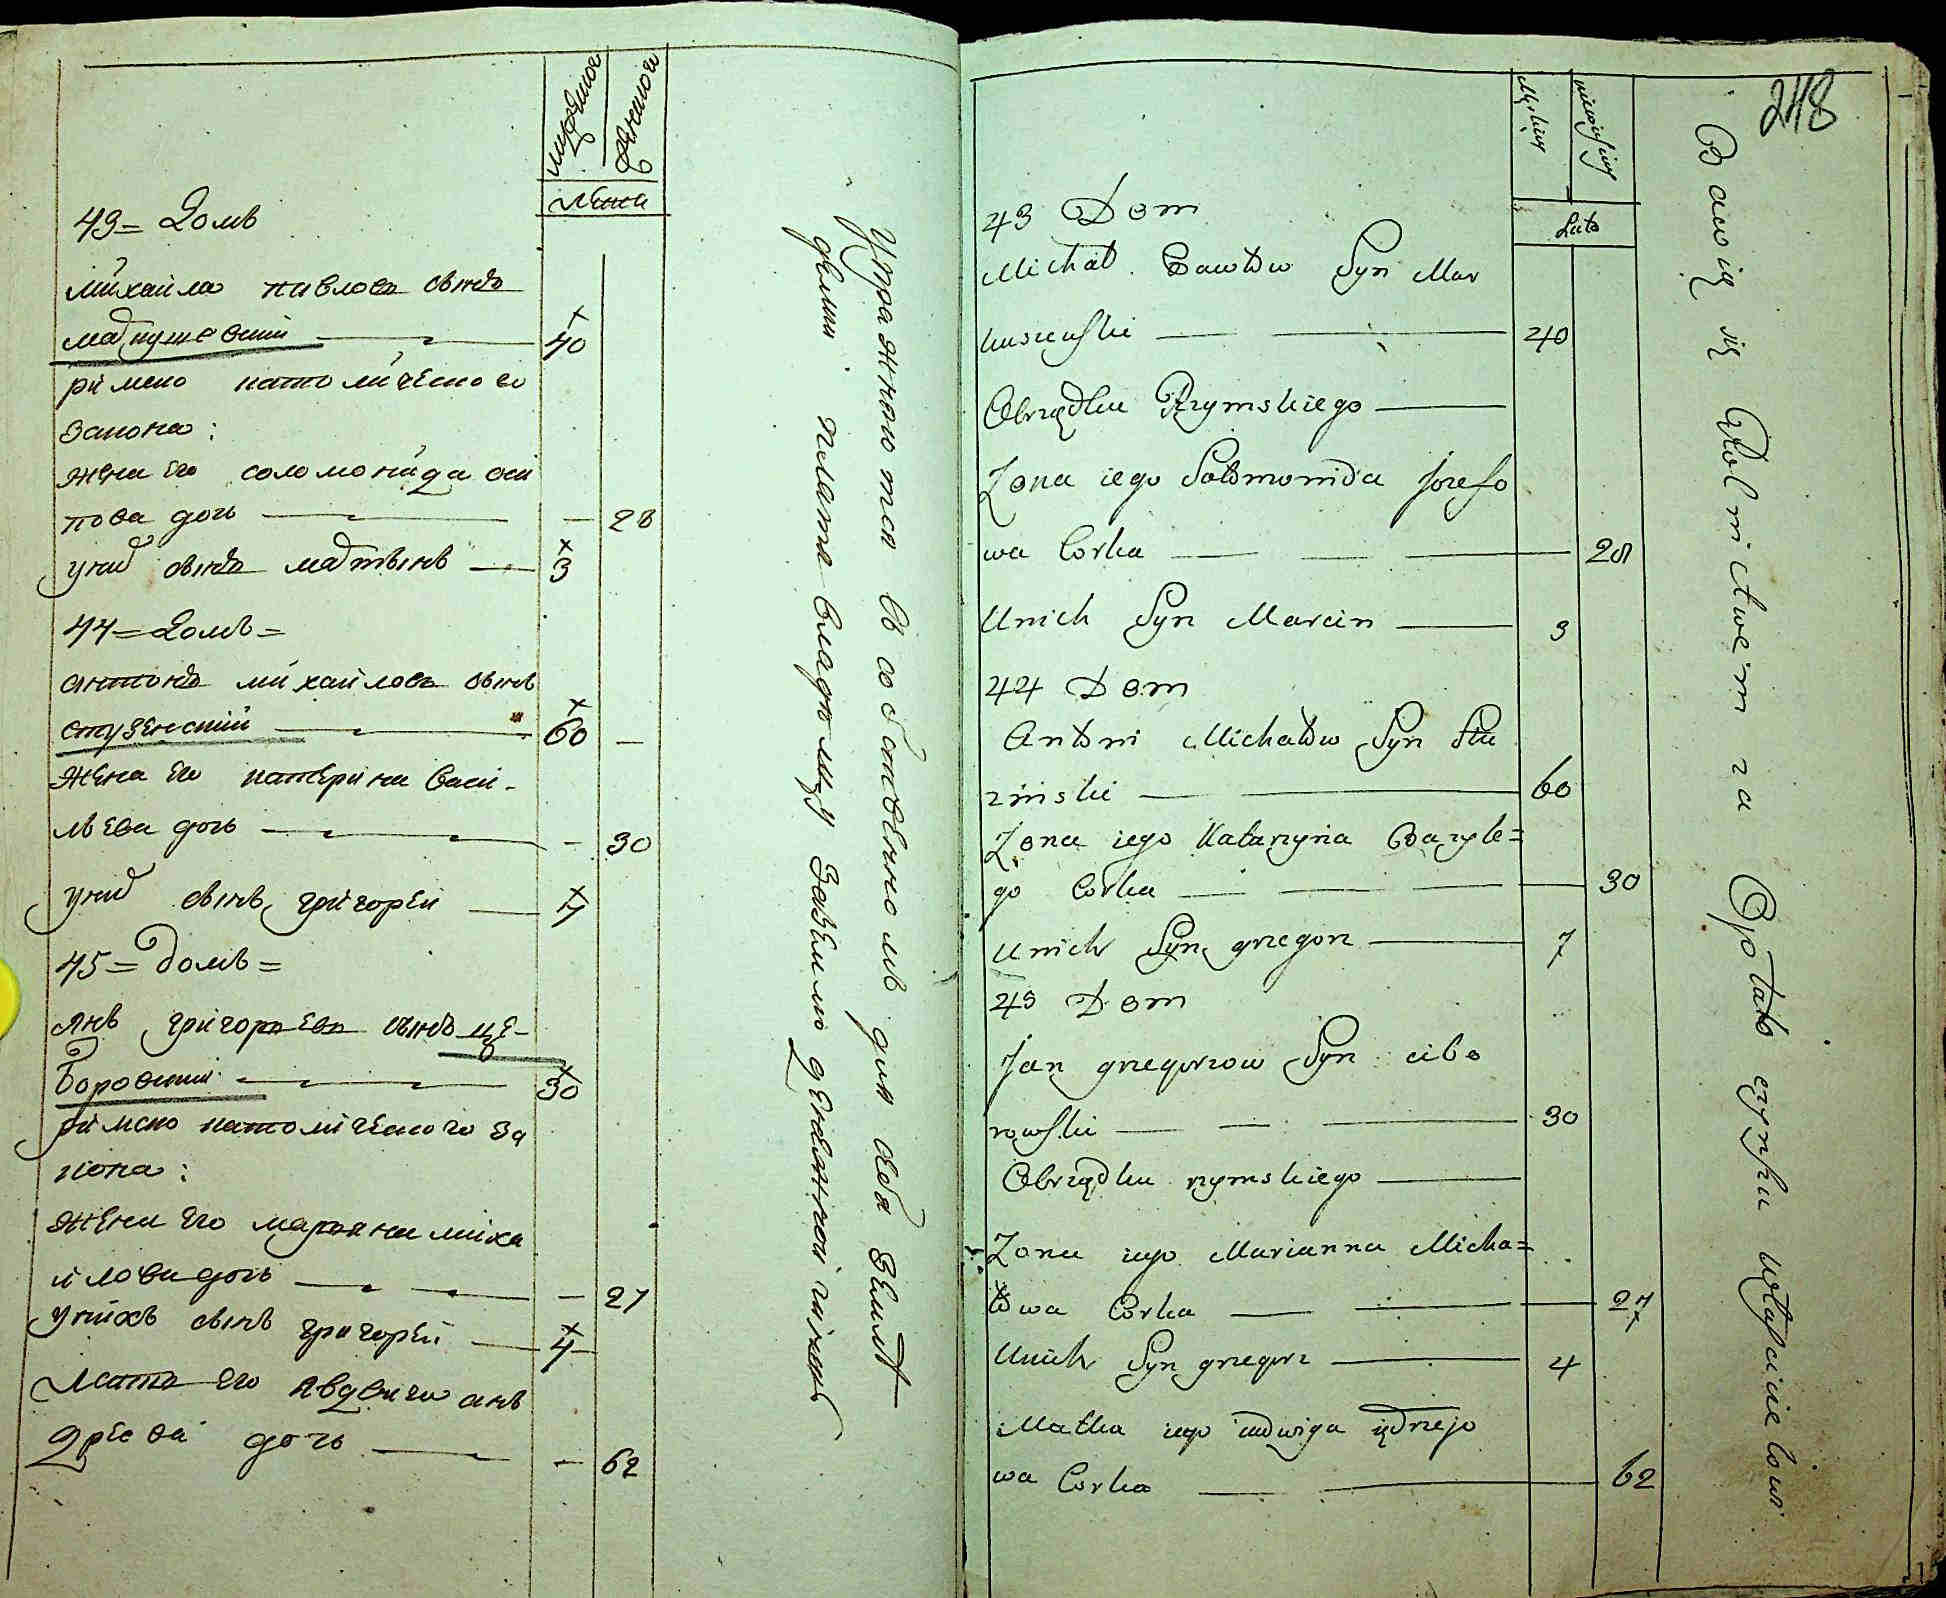 мужеска
женска
лета
43 = Домъ
михайла павловъ сынъ
матушевский 40
римско католического
закона:
жена его соломонида оси
пова дочь — 28
у них сынъ мартынъ 3
44 = Домъ =
антонъ михайловъ сынъ
стузенский 60 —
жена его катерина васи-
льева дочь — 30
у них сынъ григорей 7
45 = домъ =
янъ григорьевъ сынъ це-
боровский 30
римско католического за
кона:
жена его марянна миха
йлова дочь — 27
у нихъ сынъ григорей 4
Мать его ядвига анъ
дреева дочь — 62
упражняются въ собственномъ для себя земле
делии платя владельцу за землю денежной чиншъ
248
Męskiey
niewieskiey
Lata
43 Dom
Michał Pawłow Syn Mar
kuszewski 40
Obrządku Rzymskiego
Zona iego Sołomonida Jozefo
wa Corka 28
Unich Syn Marcin 3
44 Dom
Antoni Michałow Syn Stu
zinski 60
Zona iego Katarzyna Bazyle=
go Corka 30
Unich Syn grzegorz 7
45 Dom
Jan grzegorzow Syn cibo
rowski 30
Obrządku rzymskiego
Zona iego Marianna Micha=
łowa Corka 27
Unich Syn grzegorz 4
Matka iego iadwiga jędrzejo
wa Corka 62
Bawią się Rolnictwem za Opłatą czynszu właścicielowi